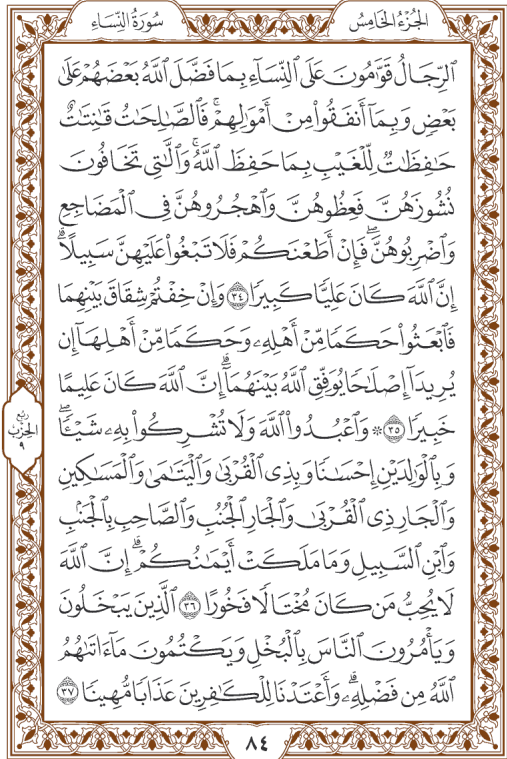 الجُزْءُ الخَامِسُ
سُورَةُ النِّسَاءِ
ٱلرِّجَالُ قَوَّٰمُونَ عَلَى ٱلنِّسَآءِ بِمَا فَضَّلَ ٱللَّهُ بَعْضَهُمْ عَلَىٰ
بَعْضٖ وَبِمَآ أَنفَقُوا۟ مِنْ أَمْوَٰلِهِمْۚ فَٱلصَّٰلِحَٰتُ قَٰنِتَٰتٌ
حَٰفِظَٰتٞ لِّلْغَيْبِ بِمَا حَفِظَ ٱللَّهُۚ وَٱلَّٰتِى تَخَافُونَ
نُشُوزَهُنَّ فَعِظُوهُنَّ وَٱهْجُرُوهُنَّ فِى ٱلْمَضَاجِعِ
وَٱضْرِبُوهُنَّۖ فَإِنْ أَطَعْنَكُمْ فَلَا تَبْغُوا۟ عَلَيْهِنَّ سَبِيلًاۗ
إِنَّ ٱللَّهَ كَانَ عَلِيّٗا كَبِيرٗا ٣٤ وَإِنْ خِفْتُمْ شِقَاقَ بَيْنِهِمَا
فَٱبْعَثُوا۟ حَكَمٗا مِّنْ أَهْلِهِۦ وَحَكَمٗا مِّنْ أَهْلِهَآ إِن
يُرِيدَآ إِصْلَٰحٗا يُوَفِّقِ ٱللَّهُ بَيْنَهُمَآۗ إِنَّ ٱللَّهَ كَانَ عَلِيمًا
خَبِيرٗا ٣٥ ۞ وَٱعْبُدُوا۟ ٱللَّهَ وَلَا تُشْرِكُوا۟ بِهِۦ شَيْـٔٗاۖ
وَبِٱلْوَٰلِدَيْنِ إِحْسَٰنٗا وَبِذِى ٱلْقُرْبَىٰ وَٱلْيَتَٰمَىٰ وَٱلْمَسَٰكِينِ
وَٱلْجَارِ ذِى ٱلْقُرْبَىٰ وَٱلْجَارِ ٱلْجُنُبِ وَٱلصَّاحِبِ بِٱلْجَنۢبِ
وَٱبْنِ ٱلسَّبِيلِ وَمَا مَلَكَتْ أَيْمَٰنُكُمْۗ إِنَّ ٱللَّهَ
لَا يُحِبُّ مَن كَانَ مُخْتَالٗا فَخُورًا ٣٦ ٱلَّذِينَ يَبْخَلُونَ
وَيَأْمُرُونَ ٱلنَّاسَ بِٱلْبُخْلِ وَيَكْتُمُونَ مَآ ءَاتَىٰهُمُ
ٱللَّهُ مِن فَضْلِهِۦۗ وَأَعْتَدْنَا لِلْكَٰفِرِينَ عَذَابٗا مُّهِينٗا ٣٧
رُبْعُ
الحِزْبِ
٩
٨٤